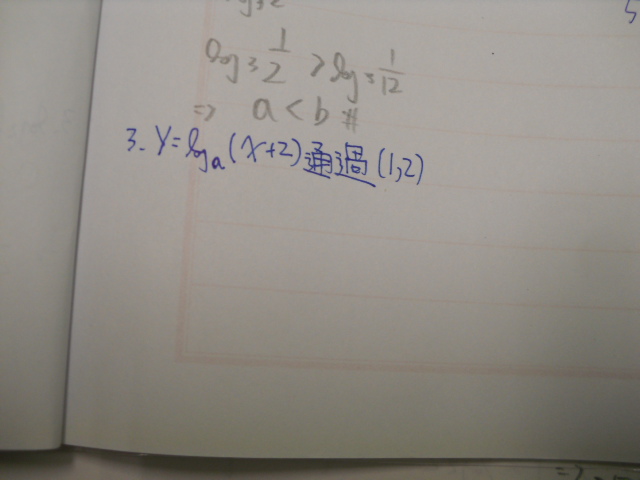 log₃ 1/2 > log₃ 1/12
=> a < b #
3. Y=logₐ(x+2)通過(1,2)